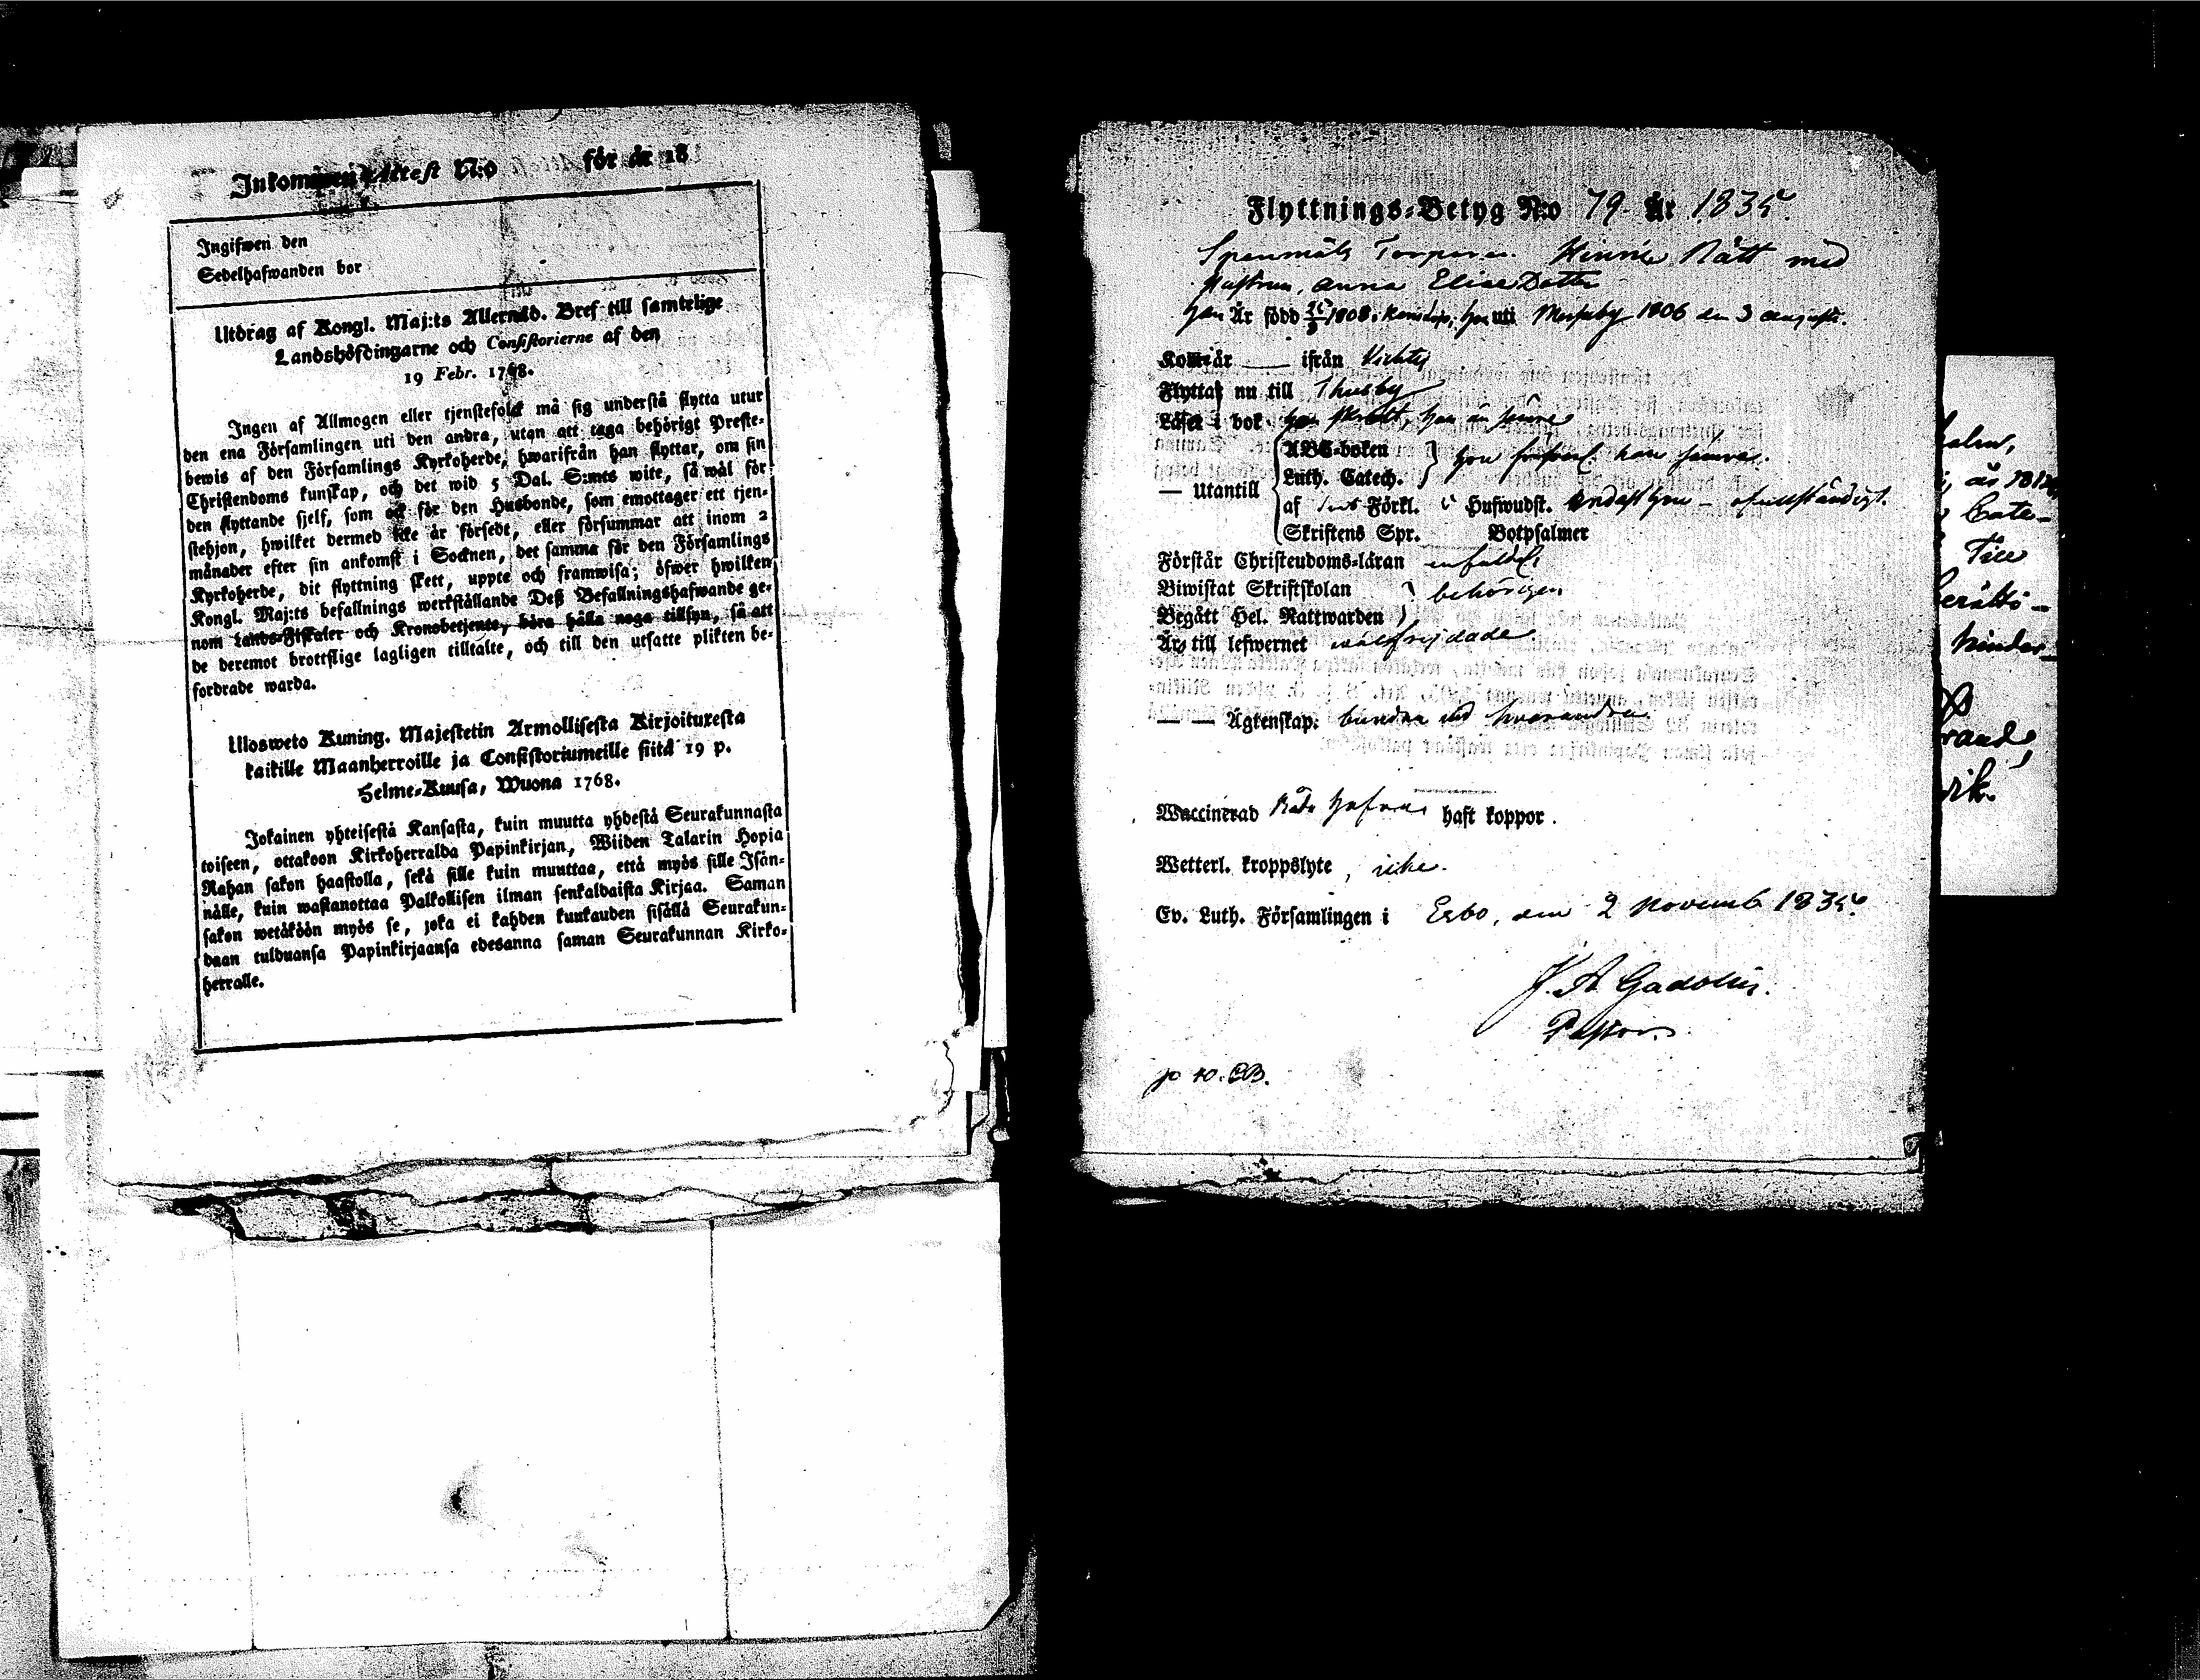 Inkommen Attest N:o för år 18
Ingifwen den
Sedelhafwanden bor
Utdrag af Kongl. Maj:ts Allernåd. Bref till samtelige
Landshöfdingarne och Consistorierne af den
19 Febr. 1768.
Ingen af Allmogen eller tjenstefolck må sig understå flytta utur
den ena Församlingen uti den andra, utan att taga behörigt Preste-
bewis af den Församlings Kyrkoherde, hwarifrån han flyttar, om sin
Christendoms kunskap, och det wid 5 Dal. S:mts wite, så wäl för
den flyttande sjelf, som ock för den Husbonde, som emottager ett tjen-
stehjon, hwilket dermed icke är försedt, eller försummar att inom 2
månader efter sin ankomst i Socknen, det samma för den Församlings
Kyrkoherde, dit flyttning skett, uppte och framwisa; öfwer hwilken
Kongl. Maj:ts befallnings werkställande Deß Befallningshafwande ge-
nom Lands-Fiskaler och Kronobetjente, böra hålla noga tillsyn, så att
de deremot brottslige lagligen tilltalte, och till den utsatte plikten be-
fordrade warda.
Ulosweto Kuning. Majestetin Armollisesta Kirjoituxesta
kaikille Maanherroille ja Consistoriumeille siitä 19 p.
Helme-Kuusa, Wuona 1768.
Jokainen yhteisestä Kansasta, kuin muutta yhdestä Seurakunnasta
toiseen, ottakoon Kirkoherralda Papinkirjan, Wiiden Talarin Hopia
Rahan sakon haastolla, sekä sille kuin muuttaa, että myös sille Isän-
nälle, kuin wastanottaa Palkollisen ilman senkaldaista Kirjaa. Saman
sakon wetäköön myös se, joka ei kahden kuukauden sisällä Seurakun-
daan tulduansa Papinkirjaansa edesanna saman Seurakunnan Kirko-
herralle.
Flyttnings-Betyg N:o 79 År 1835.
med
Hustrun, Anna Elisa Dotter
Är född 1808, hon uti 1806 den 3 augusti.
Kom år — ifrån Vichtis
Flyttar nu till Thusby
Läser i bok
ABC-boken
Luth. Catech.
— Utantill
af Förkl. Hufwudst. endast hon - ofullständigt.
Skriftens Spr. Botpsalmer
Förstår Christendoms-läran enfaldigt
Biwistat Skriftskolan
behörigen
Begått Hel. Nattwarden
Är till lefwernet wälfrejdade
— — Ägtenskap: bundna wid hwarandra.
Waccinerad Både hafwa haft koppor.
Wetterl. kroppslyte, icke.
Ev. Luth. Församlingen i Esbo, den 2 Novemb 1835.
J. A. Gadolin.
Pastor.
p 40. CB.
år 1812
Cate-
Till
hinder-